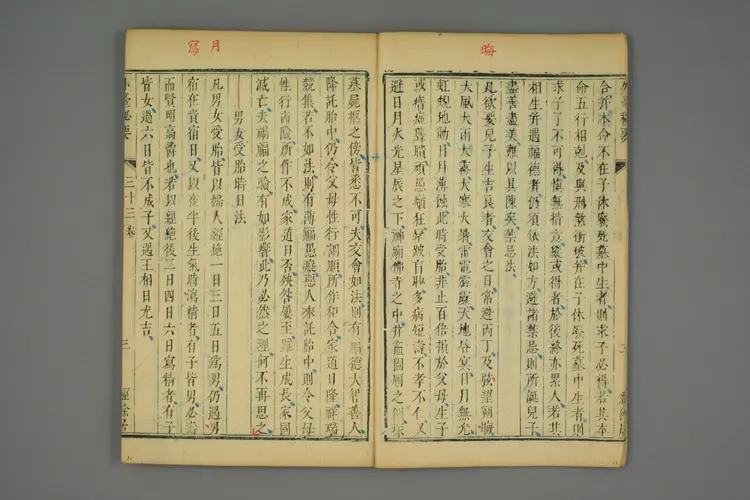 晦
合并本命不在子休廢死墓中生者則求子必得若其本
命五行相剋及與刑煞衝破并在子休廢死墓中生者則
求子了不可得慎無措意縱或得者於後終亦累人若其
相生并遇福德者仍須依法如方避諸禁忌則所誕兒子
盡善盡美難以具陳矣禁忌法
凡欲要兒子生吉良者交會之日常避丙丁及弦望朔晦
大風大雨大霧大寒大暑雷電霹靂天地昏冥日月無光
虹蜺地動日月薄蝕此時受胎非止百倍損於父母生子
或瘖瘂聾聵頑愚癲狂攣跛盲眇多病短壽不孝不仁又
避日月火光星辰之下神廟佛寺之中井竈圊廁之側塚
月
寫
墓屍柩之傍皆悉不可夫交會如法則有福德大智善人
降託胎中仍令父母性行調順所作和合家道日隆祥瑞
競集若不如法則有薄福愚癡惡人來託胎中則令父母
性行凶險所作不成家道日否殃咎屢至雖生成長家國
滅亡夫禍福之驗有如影響此乃必然之理何不再思之
男女受胎時日法
凡男女受胎皆以婦人經絕一日三日五日為男仍遇男
宿在貴宿日又以夜半後生氣時瀉精者有子皆男必壽
而賢明高爵也若以經絕後二日四日六日寫精者有子
皆女過六日皆不成子又遇王相日尤吉
外臺祕要
三十三卷
三
經餘居